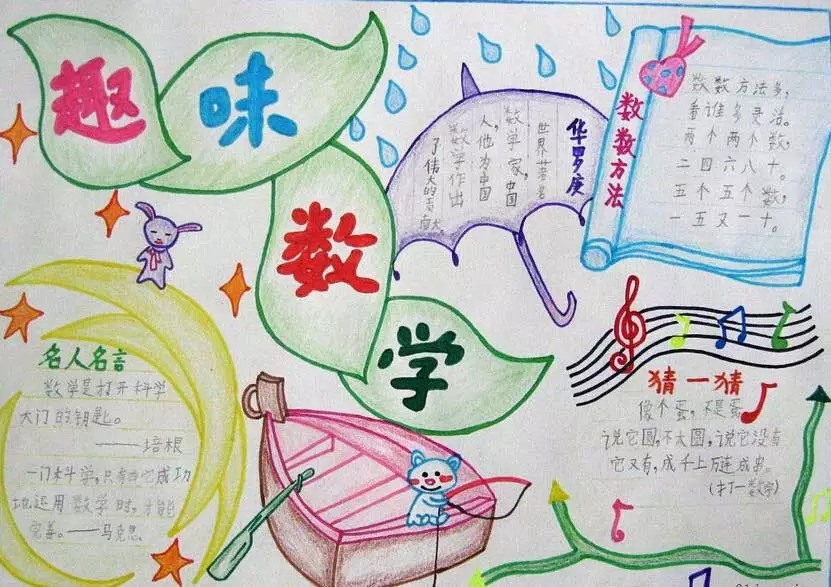 趣味数学
华罗庚
世界著名
数学家,中国
人,他为中国
数学作出
了伟大的贡献
数数方法
数数方法多,
看谁多灵活。
两个两个数,
二四六八十。
五个五个数,
一五又一十。
名人名言
数学是打开科学
大门的钥匙。
——培根
一门科学,只有当它成功
地运用数学时,才能
完善。——马克思
猜一猜
像个蛋,不是蛋
说它圆,不太圆,说它没有
它又有,成千上万连成串。
(打一数字)